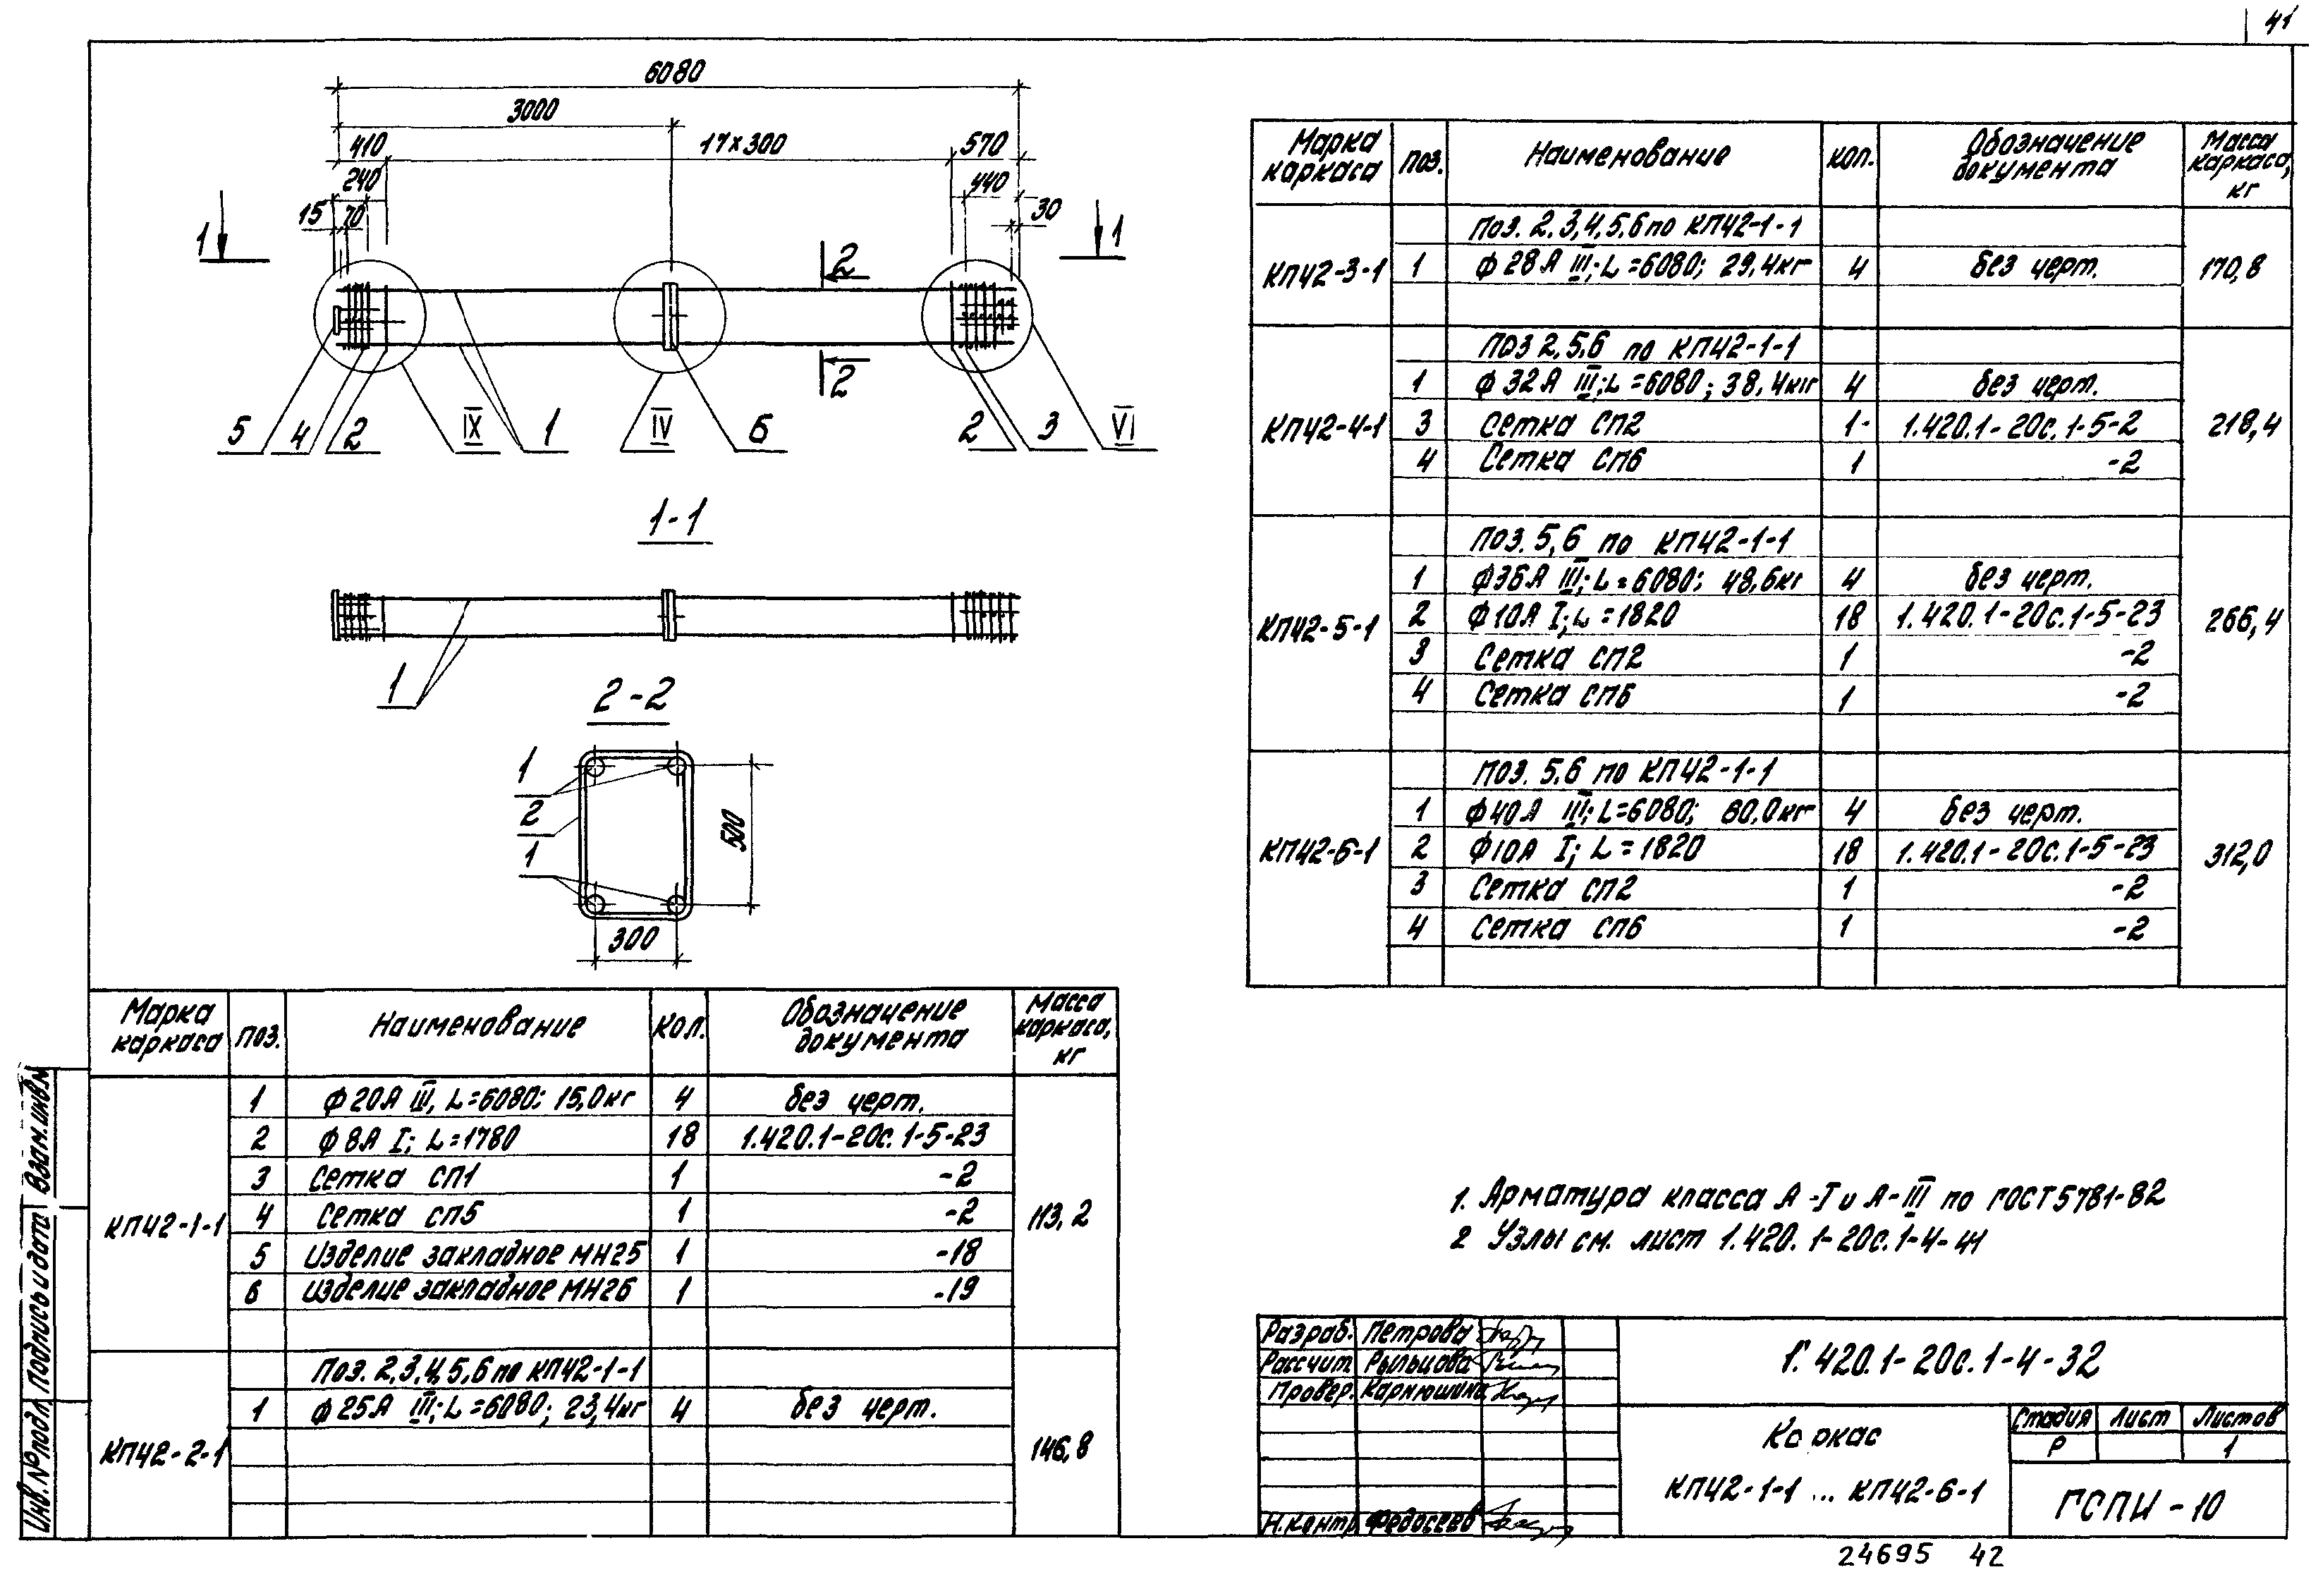 41
6080
3000
410
17×300
570
240
440
15
70
30
1
1
2
2
5
4
2
IX
1
IV
6
2
3
VI
1-1
1
2-2
1
2
1
500
300
Марка каркаса
поз.
Наименование
кол.
Обозначение документа
Масса каркаса, кг
КП42-3-1
Поз. 2,3,4,5,6 по КП42-1-1
1 ф28А III; L=6080; 29,4кг 4 без черт.
170,8
КП42-4-1
Поз 2,5,6 по КП42-1-1
1 ф32А III; L=6080; 38,4кг 4 без черт.
3 Сетка СП2 1 1.420.1-20с.1-5-2
4 Сетка СП6 1 -2
218,4
КП42-5-1
Поз. 5,6 по КП42-1-1
1 ф36А III; L=6080; 48,6кг 4 без черт.
2 ф10А I; L=1820 18 1.420.1-20с.1-5-23
3 Сетка СП2 1 -2
4 Сетка СП6 1 -2
266,4
КП42-6-1
Поз. 5,6 по КП42-1-1
1 ф40А III; L=6080; 60,0кг 4 без черт.
2 ф10А I; L=1820 18 1.420.1-20с.1-5-23
3 Сетка СП2 1 -2
4 Сетка СП6 1 -2
312,0
Марка каркаса
поз.
Наименование
Кол.
Обозначение документа
Масса каркаса, кг
КП42-1-1
1 ф20А III, L=6080; 15,0кг 4 без черт.
2 ф8А I; L=1780 18 1.420.1-20с.1-5-23
3 Сетка СП1 1 -2
4 Сетка СП5 1 -2
5 Изделие закладное МН25 1 -18
6 изделие закладное МН26 1 -19
113,2
КП42-2-1
Поз. 2,3,4,5,6 по КП42-1-1
1 ф25А III; L=6080; 23,4кг 4 без черт.
146,8
1. Арматура класса А-I и А-III по ГОСТ 5781-82
2 Узлы см. лист 1.420.1-20с.1-4-41
Разраб. Петрова
Рассчит. Рыльцова
Провер. Карнюшина
Н.контр Федосеев
1.420.1-20с.1-4-32
Каркас
КП42-1-1 ... КП42-6-1
Стадия Лист Листов
Р 1
ГСПИ-10
24695 42
Взам.инв.№
Подпись и дата
Инв.№подл